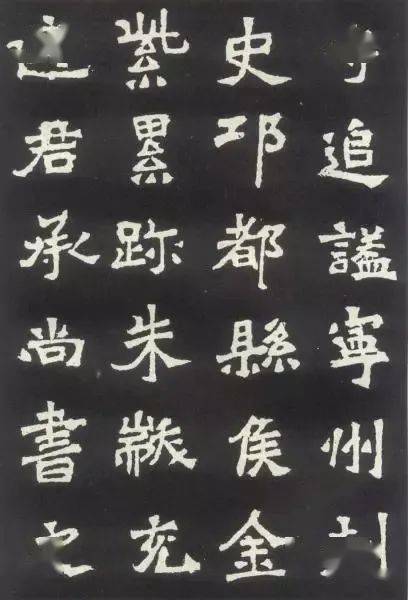 追謚寧州
史邛都縣侯金
紫累跡朱黻充
君承尚書之